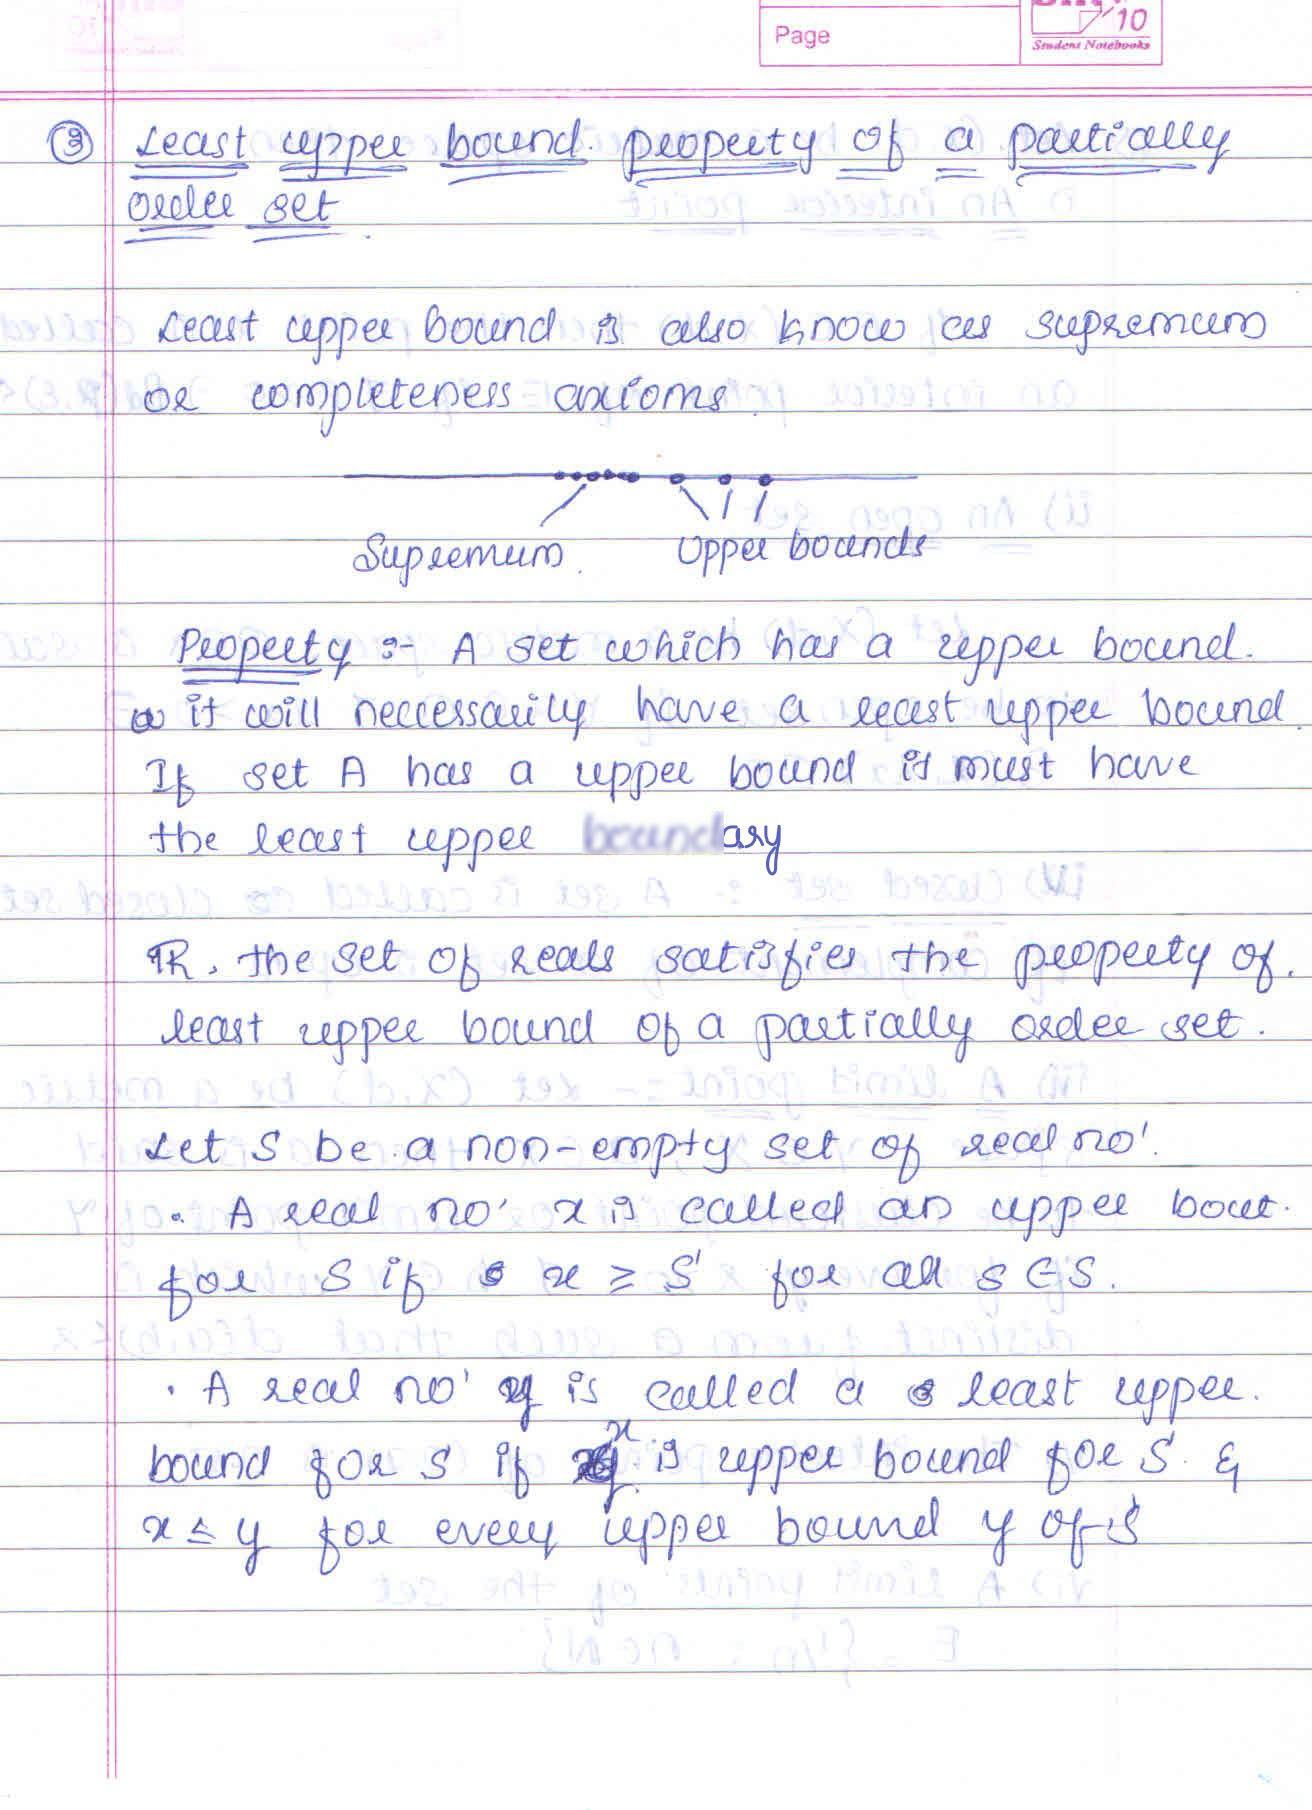 Page
10
Student Notebooks
③ Least upper bound. property of a partially
order set
Least upper bound is also know as supremum
or completeness axioms.
Supremum. Upper bounds
Property :- A set which has a upper bound.
it will neccessarily have a least upper bound.
If set A has a upper bound it must have
the least upper
ℝ, the set of reals satisfies the property of.
least upper bound of a partially order set.
Let S be a non-empty set of real no'.
. A real no' x is called an upper bout.
for S if x ≥ S' for all s ∈ S.
. A real no' y is called a least upper.
bound for S if x is upper bound for S. &
x ≤ y for every upper bound y of S